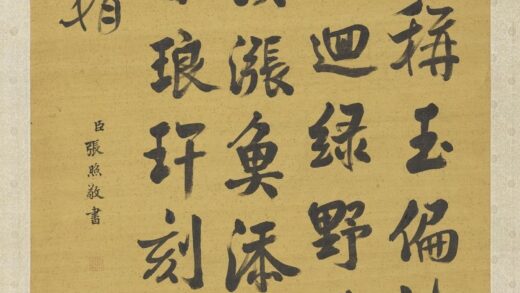 稱玉偏
迴緑野
漲魚添
琅玕刻
臣張照敬書